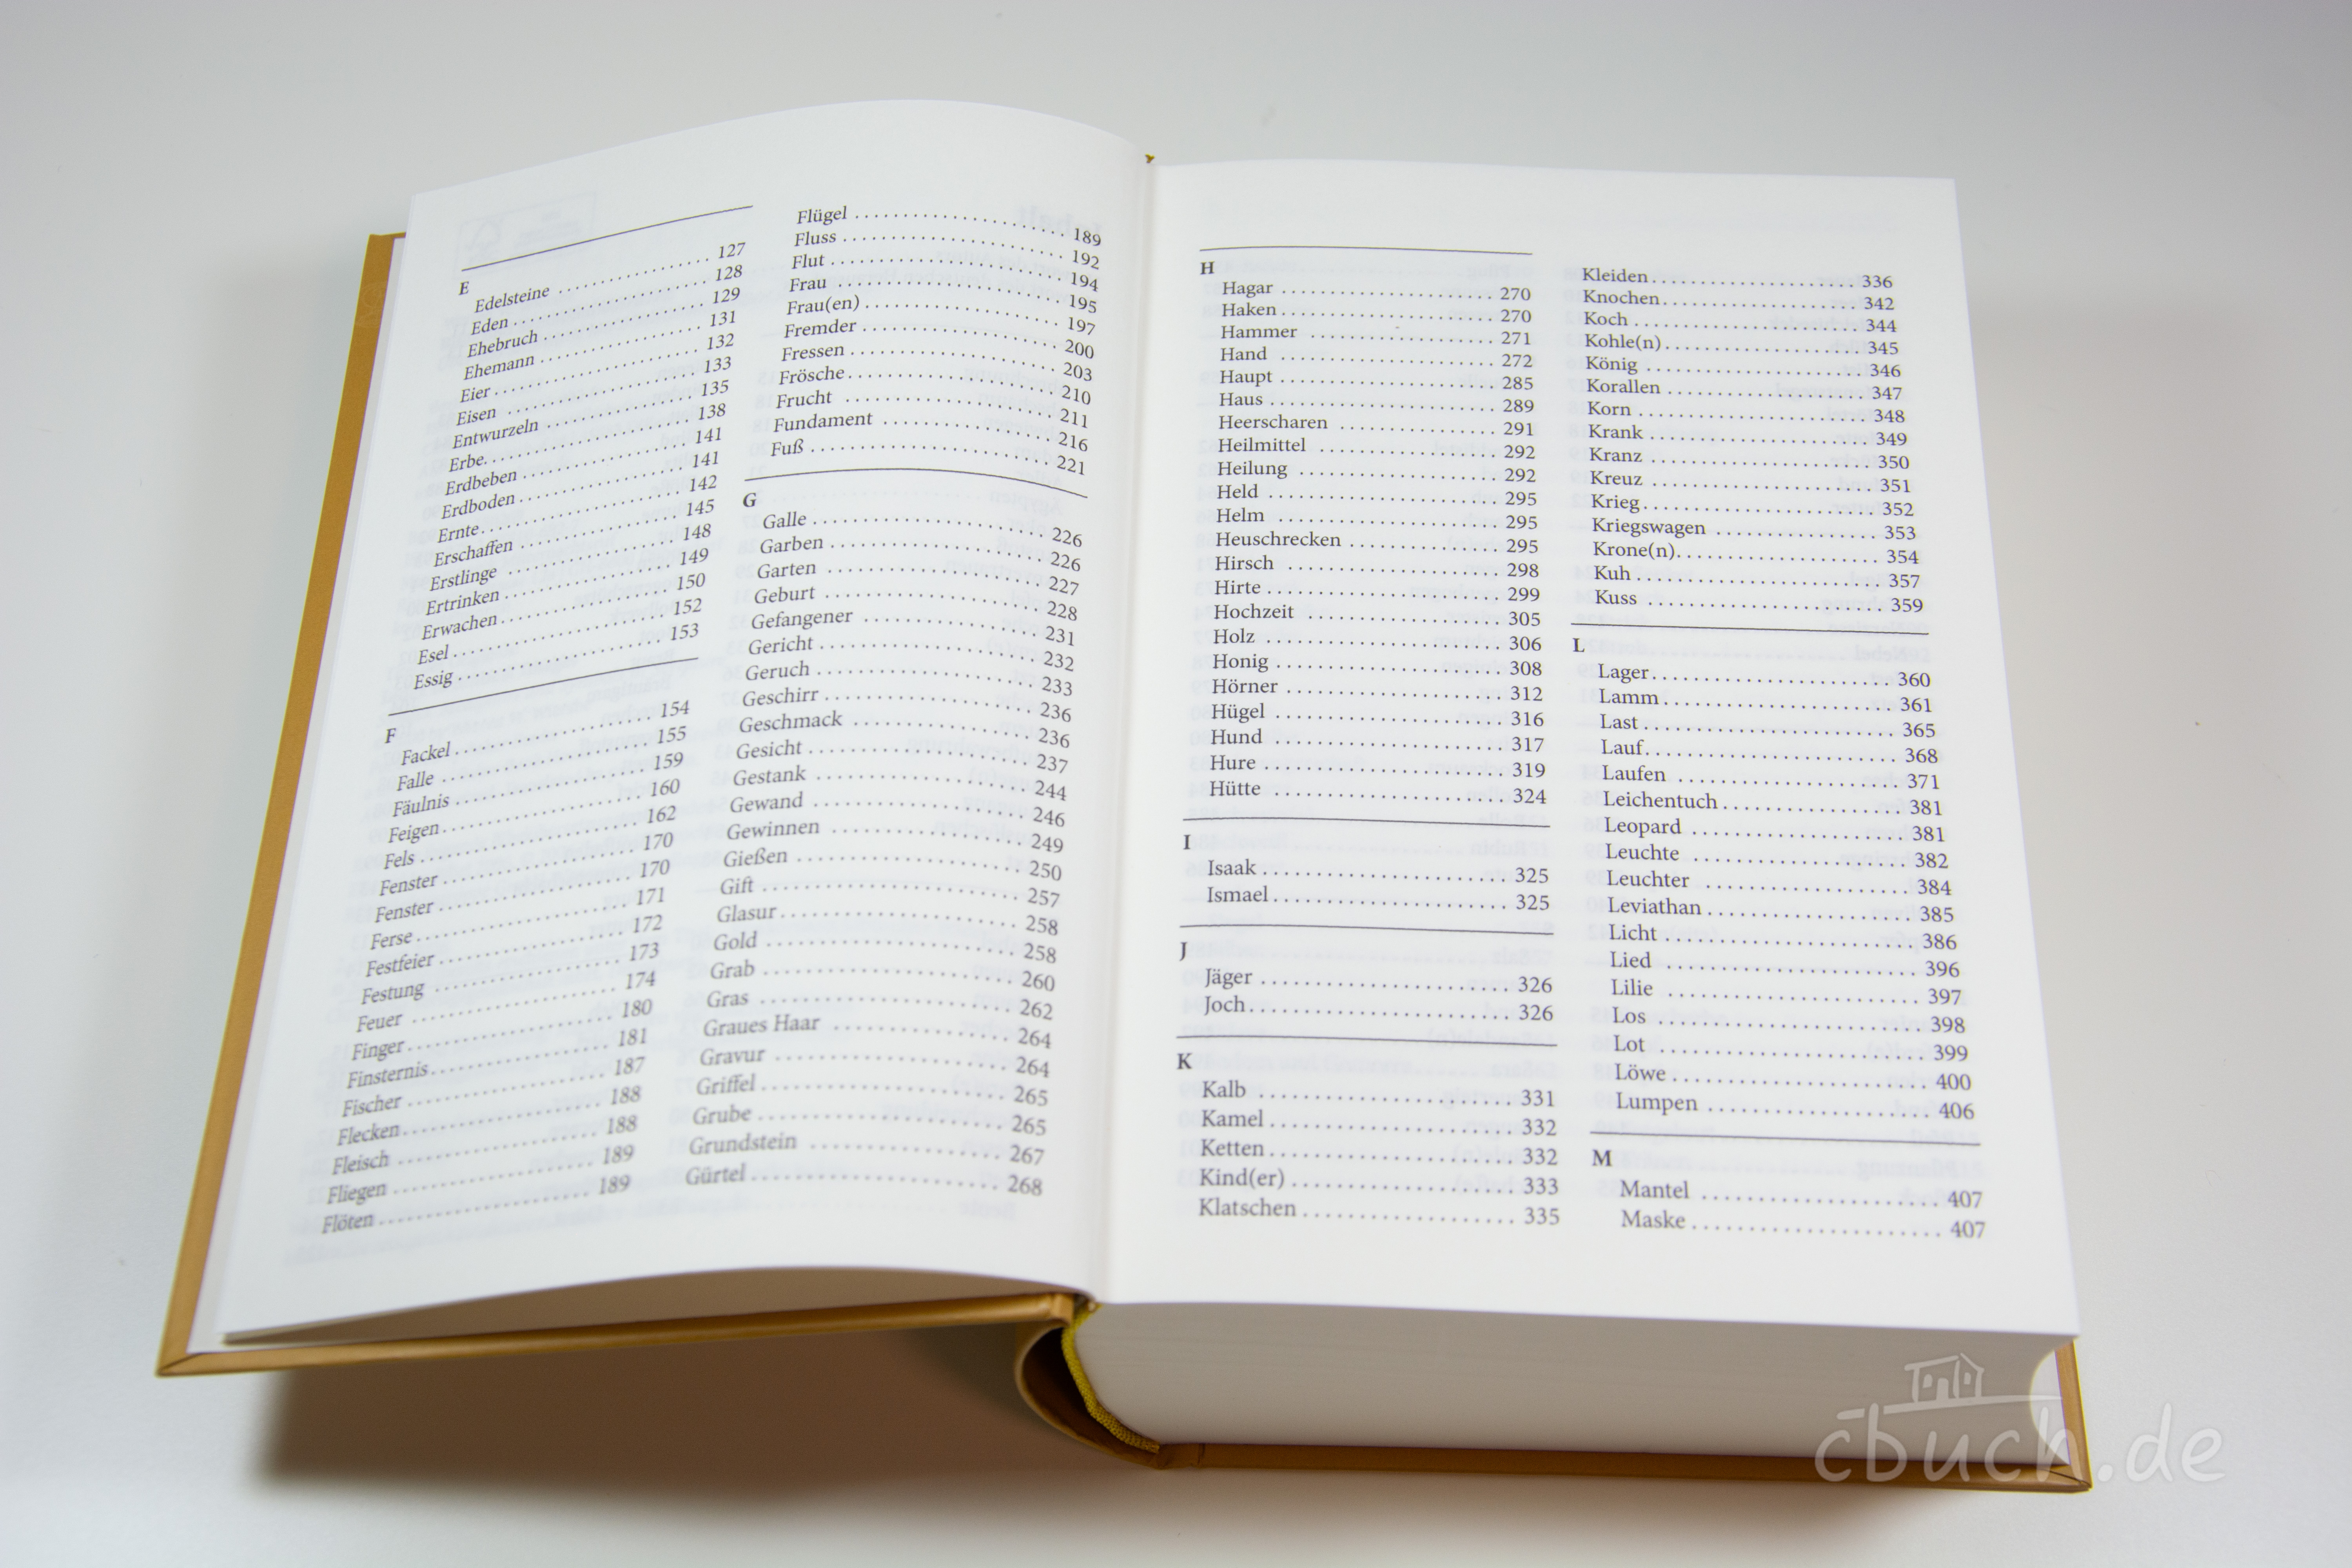 E
Edelsteine ........ 127
Eden ........ 128
Ehebruch ........ 129
Ehemann ........ 131
Eier ........ 132
Eisen ........ 133
Entwurzeln ........ 135
Erbe ........ 138
Erdbeben ........ 141
Erdboden ........ 141
Ernte ........ 142
Erschaffen ........ 145
Erstlinge ........ 148
Ertrinken ........ 149
Erwachen ........ 150
Esel ........ 152
Essig ........ 153
F
Fackel ........ 154
Falle ........ 155
Fäulnis ........ 159
Feigen ........ 160
Fels ........ 162
Fenster ........ 170
Fenster ........ 170
Ferse ........ 171
Festfeier ........ 172
Festung ........ 173
Feuer ........ 174
Finger ........ 180
Finsternis ........ 181
Fischer ........ 187
Flecken ........ 188
Fleisch ........ 188
Fliegen ........ 189
Flöten ........ 189
Flügel ........ 189
Fluss ........ 192
Flut ........ 194
Frau ........ 195
Frau(en) ........ 197
Fremder ........ 200
Fressen ........ 203
Frösche ........ 210
Frucht ........ 211
Fundament ........ 216
Fuß ........ 221
G
Galle ........ 226
Garben ........ 226
Garten ........ 227
Geburt ........ 228
Gefangener ........ 231
Gericht ........ 232
Geruch ........ 233
Geschirr ........ 236
Geschmack ........ 236
Gesicht ........ 237
Gestank ........ 244
Gewand ........ 246
Gewinnen ........ 249
Gießen ........ 250
Gift ........ 257
Glasur ........ 258
Gold ........ 258
Grab ........ 260
Gras ........ 262
Graues Haar ........ 264
Gravur ........ 264
Griffel ........ 265
Grube ........ 265
Grundstein ........ 267
Gürtel ........ 268
H
Hagar ........ 270
Haken ........ 270
Hammer ........ 271
Hand ........ 272
Haupt ........ 285
Haus ........ 289
Heerscharen ........ 291
Heilmittel ........ 292
Heilung ........ 292
Held ........ 295
Helm ........ 295
Heuschrecken ........ 295
Hirsch ........ 298
Hirte ........ 299
Hochzeit ........ 305
Holz ........ 306
Honig ........ 308
Hörner ........ 312
Hügel ........ 316
Hund ........ 317
Hure ........ 319
Hütte ........ 324
I
Isaak ........ 325
Ismael ........ 325
J
Jäger ........ 326
Joch ........ 326
K
Kalb ........ 331
Kamel ........ 332
Ketten ........ 332
Kind(er) ........ 333
Klatschen ........ 335
Kleiden ........ 336
Knochen ........ 342
Koch ........ 344
Kohle(n) ........ 345
König ........ 346
Korallen ........ 347
Korn ........ 348
Krank ........ 349
Kranz ........ 350
Kreuz ........ 351
Krieg ........ 352
Kriegswagen ........ 353
Krone(n) ........ 354
Kuh ........ 357
Kuss ........ 359
L
Lager ........ 360
Lamm ........ 361
Last ........ 365
Lauf ........ 368
Laufen ........ 371
Leichentuch ........ 381
Leopard ........ 381
Leuchte ........ 382
Leuchter ........ 384
Leviathan ........ 385
Licht ........ 386
Lied ........ 396
Lilie ........ 397
Los ........ 398
Lot ........ 399
Löwe ........ 400
Lumpen ........ 406
M
Mantel ........ 407
Maske ........ 407
cbuch.de